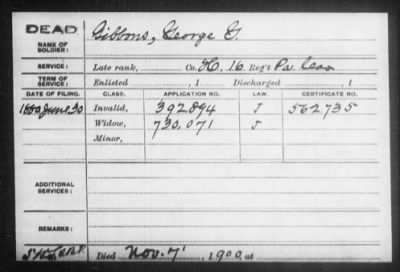 DEAD
NAME OF SOLDIER: Gibbons, George G.
SERVICE: Late rank, Co. H, 16 Reg't Pa. Cav.
TERM OF SERVICE: Enlisted , 1 Discharged , 1
DATE OF FILING. CLASS. APPLICATION NO. LAW. CERTIFICATE NO.
1880 June 30 Invalid, 392.894 J 562735
Widow, 730.071 J
Minor,
ADDITIONAL SERVICES:
REMARKS:
Died Nov. 7, 1900, at